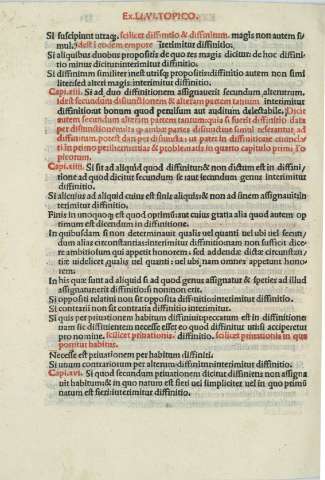 Ex. LI. VI. TOPICO.
SI suscipiunt utraq. scilicet diffinitio & diffinitum. magis non autem si
mul. idest i eodem tempore Interimitur diffinitio.
Si aliquibus duobus propositis de quo tes magis dicitur de hoc diffini
tio minus dicitur interimitur diffinitio.
Si diffinitum similiter inest utrisq propositis: diffinitio autem non simi
liter sed alteri magis: interimitur diffinitio.
Capi. iii. Si ad duo diffinitionem assignauerit secundum alterutrum.
idest secundum disiunctionem & alteram partem tantum. interimitur
diffinitio ut bonum quod per uisum aut auditum delectabile. Dicit
autem secundum alteram partem tantum quia si fuerit diffinitio data
per disiunctionem ita q ambæ partes disiunctiue simul referantur, ad
diffinitum. potest dari per disiuncta: ut patet in diffinitione enuncia
ti in primo perihermenias & problematis in quarto capitulo primi To
picorum.
Capi. iiii. Si sit ad aliquid quod diffinitur & non dictum est in diffini
tione ad quod dicitur secundum se uel secundum genus interimitur
diffinitio.
Si alicuius ad aliquid cuius est finis aliquis: & non ad finem assignauit in
terimitur diffinitio.
Finis in unoquoq; est quod optimum: aut cuius gratia alia quod autem op
timum est dicendum in diffinitione.
In quibusdam si non determinauit qualis uel quanti uel ubi uel secun
dum alias circumstantias: interimitur diffinitio nam non sufficit dice
re ambitiosum qui appetit honorem: sed addendæ dictæ circunstan
tiæ uidelicet, qualis uel quanti: uel ubi, nam omnes appetunt hono
rem:
In his quæ sunt ad aliquid si ad quod genus assignatur & species ad illud
assignatur erit diffinitio: si non non erit.
Si oppositi relatiui non sit opposita diffinitio interimitur diffinitio.
Si contrarii non sit contraria diffinitio interimitur.
Si quis per priuationem habitum diffiniuit: peccatum est in diffinitione
nam sic diffinientem necesse esset eo quod diffinitur uti: si acciperetur
pro nomine. scilicet priuationis. diffinitio. scilicet priuationis in qua
ponitur habitus.
Necesse est priuationem per habitum diffiniti.
Si unum contrariorum per alterum diffiniuit interimitur diffinitio.
Capi. xvi. Si quod secundum priuationem dicitur diffiniens non assigna
uit habitum & in quo natum est fieri uel simpliciter uel in quo primum
natum est fieri: interimitur diffinitio.